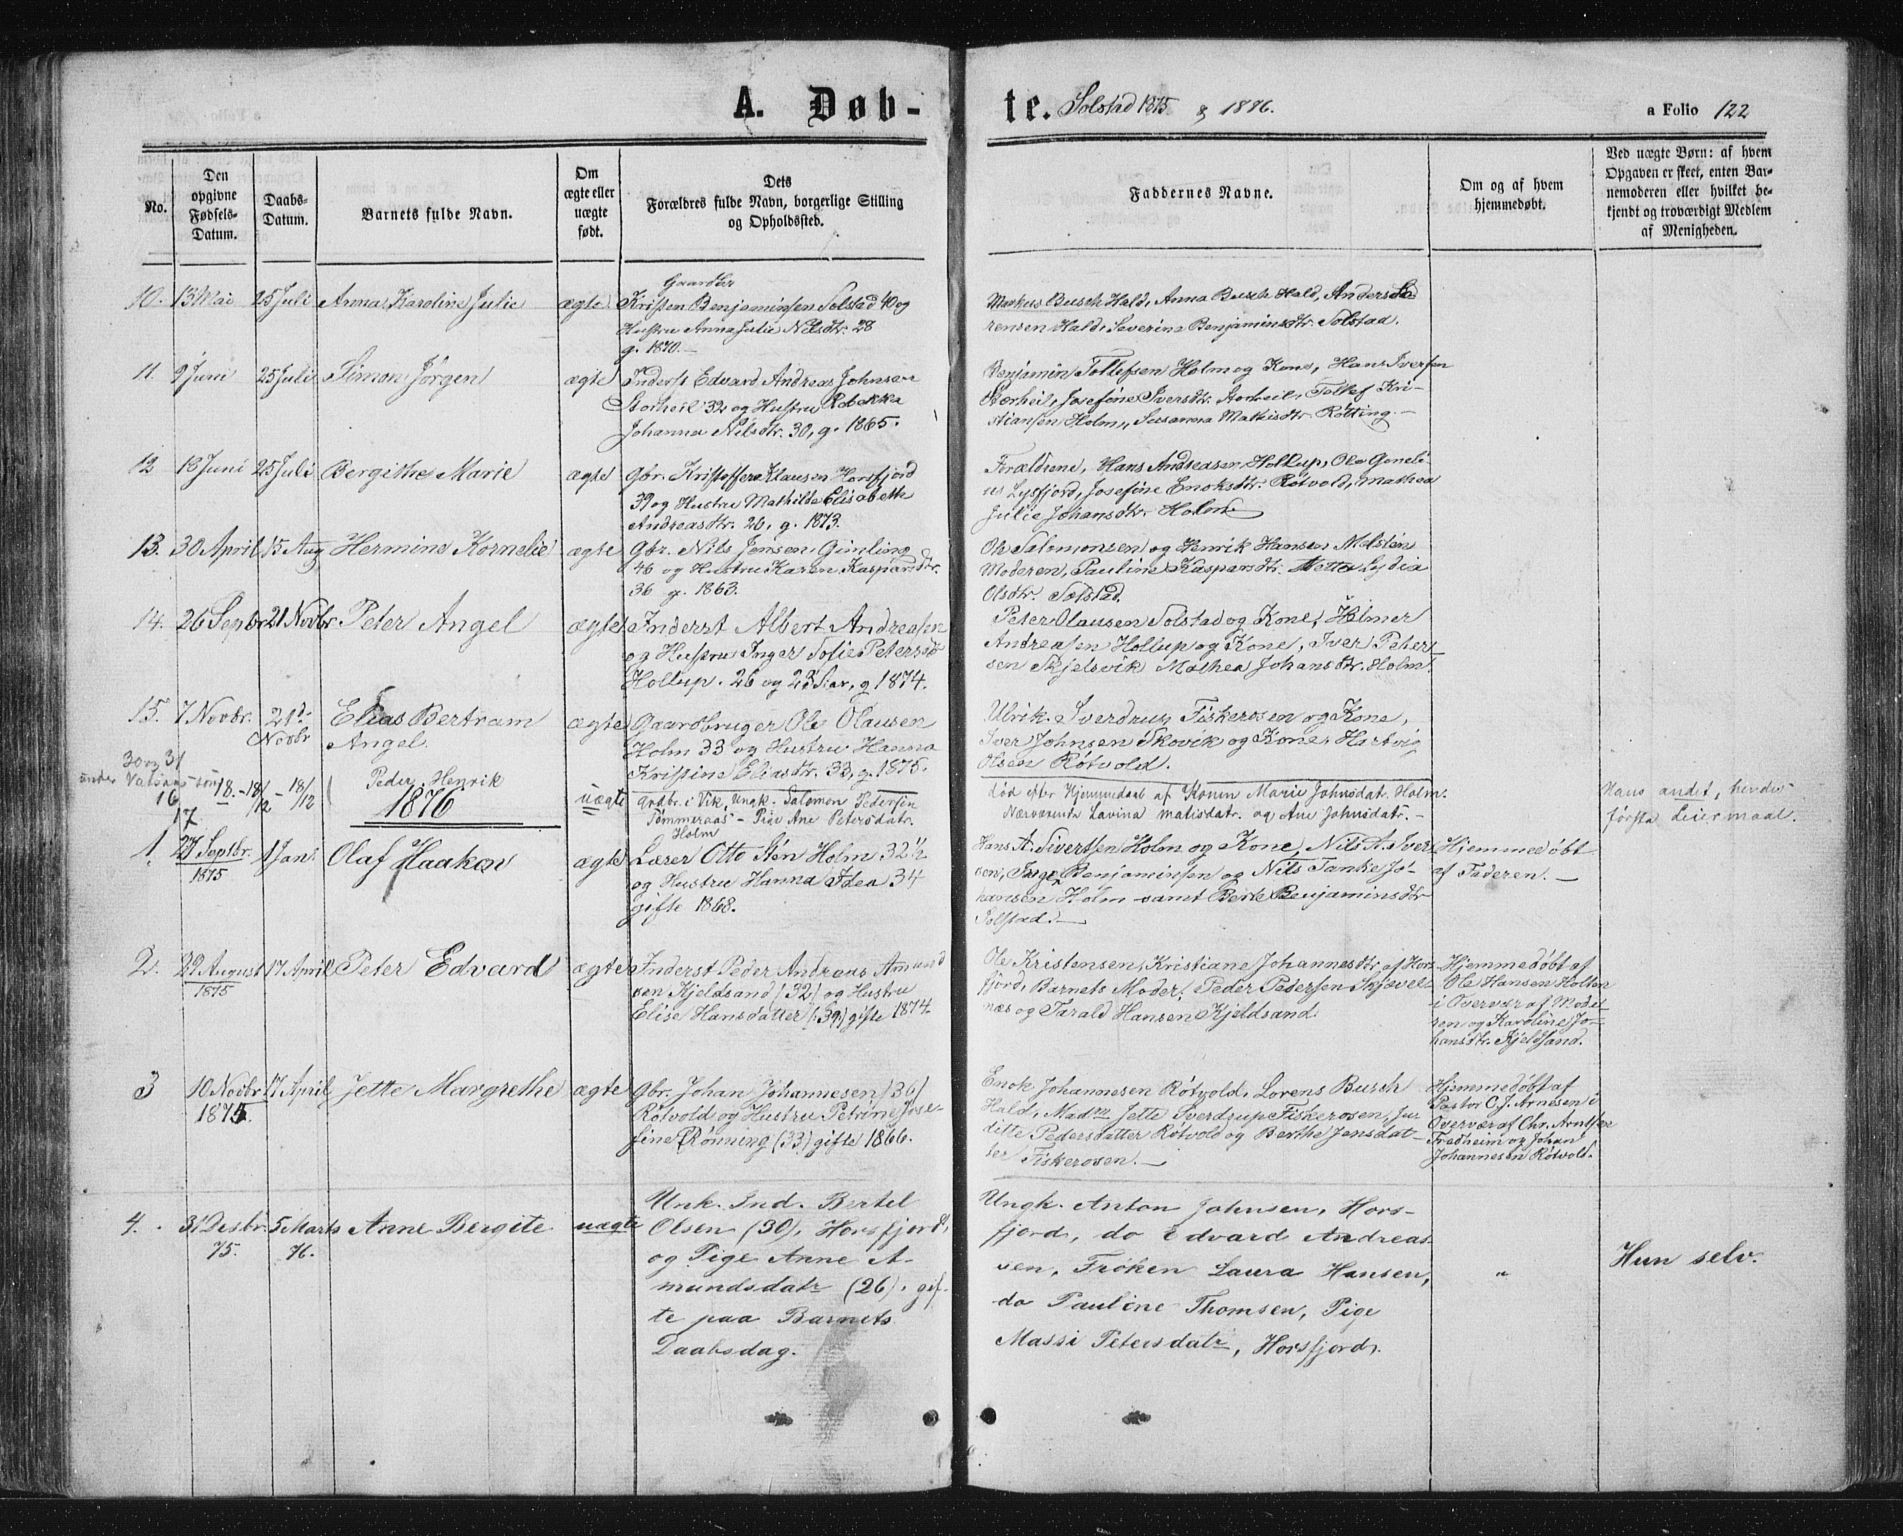 A. Døb-
te. Solstad 1875 & 1876.
a Folio 122
No.
Den
opgivne
Fødsels-
Datum.
Daabs-
Datum.
Barnets fulde Navn.
Om
ægte eller
uægte
født.
Dets
Forældres fulde Navn, borgerlige Stilling
og Opholdssted.
Faddernes Navne.
Om og af hvem
hjemmedøbt.
Ved uægte Børn: af hvem
Opgaven er skeet, enten Bar-
nemoderen eller hvilket be-
kjendt og troværdigt Medlem
af Menigheden.
10. 13 Mai 25 Juli Anna Karoline Julie ægte
Gaardbr
Kristen Benjaminsen Solstad 40 og
Hustru Anna Julie Nilsdtr. 28
g. 1870.—
Markus Busch Hald, Anna Busch Hald, Anders Sø-
rensen Hald, Severine Benjaminsdtr. Solstad.
11. 9 Juni 25 Juli Simon Jørgen ægte
Inderst Edvard Andreas Johnsen
Storheil 32 og Hustru Rebekka
Johanna Nilsdtr. 30, g. 1865.
Benjamin Tollefsen Holm og Kone, Hans Iversen
Storheil, Josefine Iversdtr. Storheil, Tollef Kri-
stiansen Holm, Susanna Mathisdtr. Røtting.—
12 18 Juni 25 Juli Bergithe Marie ægte
Gbr. Kristoffer Klausen Horsfjord
39 og Hustru Mathilde Elisabeth
Andreasdtr. 26, g. 1873.
Forældrene, Hans Andreasen Hollup, Ole Corneli-
us Lysfjord, Josefine Enoksdtr. Røtvold, Mathea
Julie Johansdtr. Holm
13. 30 April 15 Aug Hermine Kornelie ægte
Gbr. Nils Jensen Gimling
46 og Hustru Karen Kaspersdtr.
36 g. 1863.
Ole Salomonsen og Henrik Hansen
Moderen, Pauline Kaspersdtr. Metta Lydia
Olsdtr. Solstad.
14. 26 Sepbr 21 Novbr Peter Angel ægte
Inderst Albert Andreasen
og Hustru Inger Sofie Petersdtr
Hollup. 26 og 23 Aar, g 1874.
Peter Olausen Solstad og Kone, Helmer
Andreasen Hollup og Kone, Iver Peter-
sen Skjelsvik Mathea Johansdtr. Holm.
15. 7 Novbr. 21de
Novbr
Elias Bertram
Angel.
ægte
Gaardbruger Ole Olausen
Holm 33 og Hustru Hanna
Kristine Eliasdtr. 33, g. 1875.
Ulrik Sverdrup Fiskerosen og Kone,
Iver Johnsen Skovik og Kone, Hartvig
Olsen Røtvold.
30 og 31
under
16
17
18. – 18/12 – 18/12
Peder Henrik
uægte
Grdbr. i Vik, Ungk. Salomon Pedersen
Sømmeraas – Pige Ane Petersdatr.
Holm
død efter Hjemmedaab af Konen Marie Johnsdat. Holm.
Nærværende Lavina Matisdatr. og Ane Johnsdatr.—
Hans andet, hendes
første Leiermaal.
1876
1. 27 Septbr.
1875
1 Jan. Olaf Haakon ægte
Lærer Otto Sten Holm 32½
og Hustru Hanna Thea 34
gifte 1868.
Hans A. Sivertsen Holm og Kone, Nils A. Iver-
sen, Inger Benjaminsen og Nils Tanke Jo-
hansen Holm samt Berte Benjaminsdtr
Solstad.—
Hjemmedøbt
af Faderen.—
2. 29 August
1875
17 April Peter Edvard ægte
Inderst Peder Andreas Amund-
sen Kjeldsand (32) og Hustru
Elise Hansdatter (39) gifte 1874.
Ole Kristensen, Kristiane Johannesdtr. af Hors-
fjord, Barnets Moder, Peder Pedersen Skjævel-
næs og Tarald Hansen Kjeldsand.
Hjemmedøbt af
Ole Hansen Holten
i Overvær af Mode-
ren og Karoline Jo-
hansdtr. Kjeldsand.
3 10 Novbr
1875
17 April Jette Margrethe ægte
Gbr. Johan Johannesen (36)
Røtvold og Hustru Petrine Jose-
fine Rønning (33) gifte 1866.
Enok Johannesen Røtvold, Lorens Busch
Hald, Madm Jette Sverdrup Fiskerosen, Ju-
ditte Pedersdatter Røtvold og Berthe Jensdat-
ter Fiskerosen.—
Hjemmedøbt af
Pastor C. J. Arnesen i
Overvær af Chr. Arntsen
Fredheim og Johan
Johannesen Røtvold.
4. 31 Desbr.
75.
5 Marts
76.
Anne Bergite uægte
Unk. Ind. Bertel
Olsen (30), Horsfjord,
og Pige Anne A-
mundsdatr (26), gif-
te paa Barnets
Daabsdag.
Ungk. Anton Johnsen, Hors-
fjord, do Edvard Andreas-
sen, Frøken Laura Hansen,
do Pauline Thomsen, Pige
Massi Petersdatr, Horsfjord.
"
Hun selv.